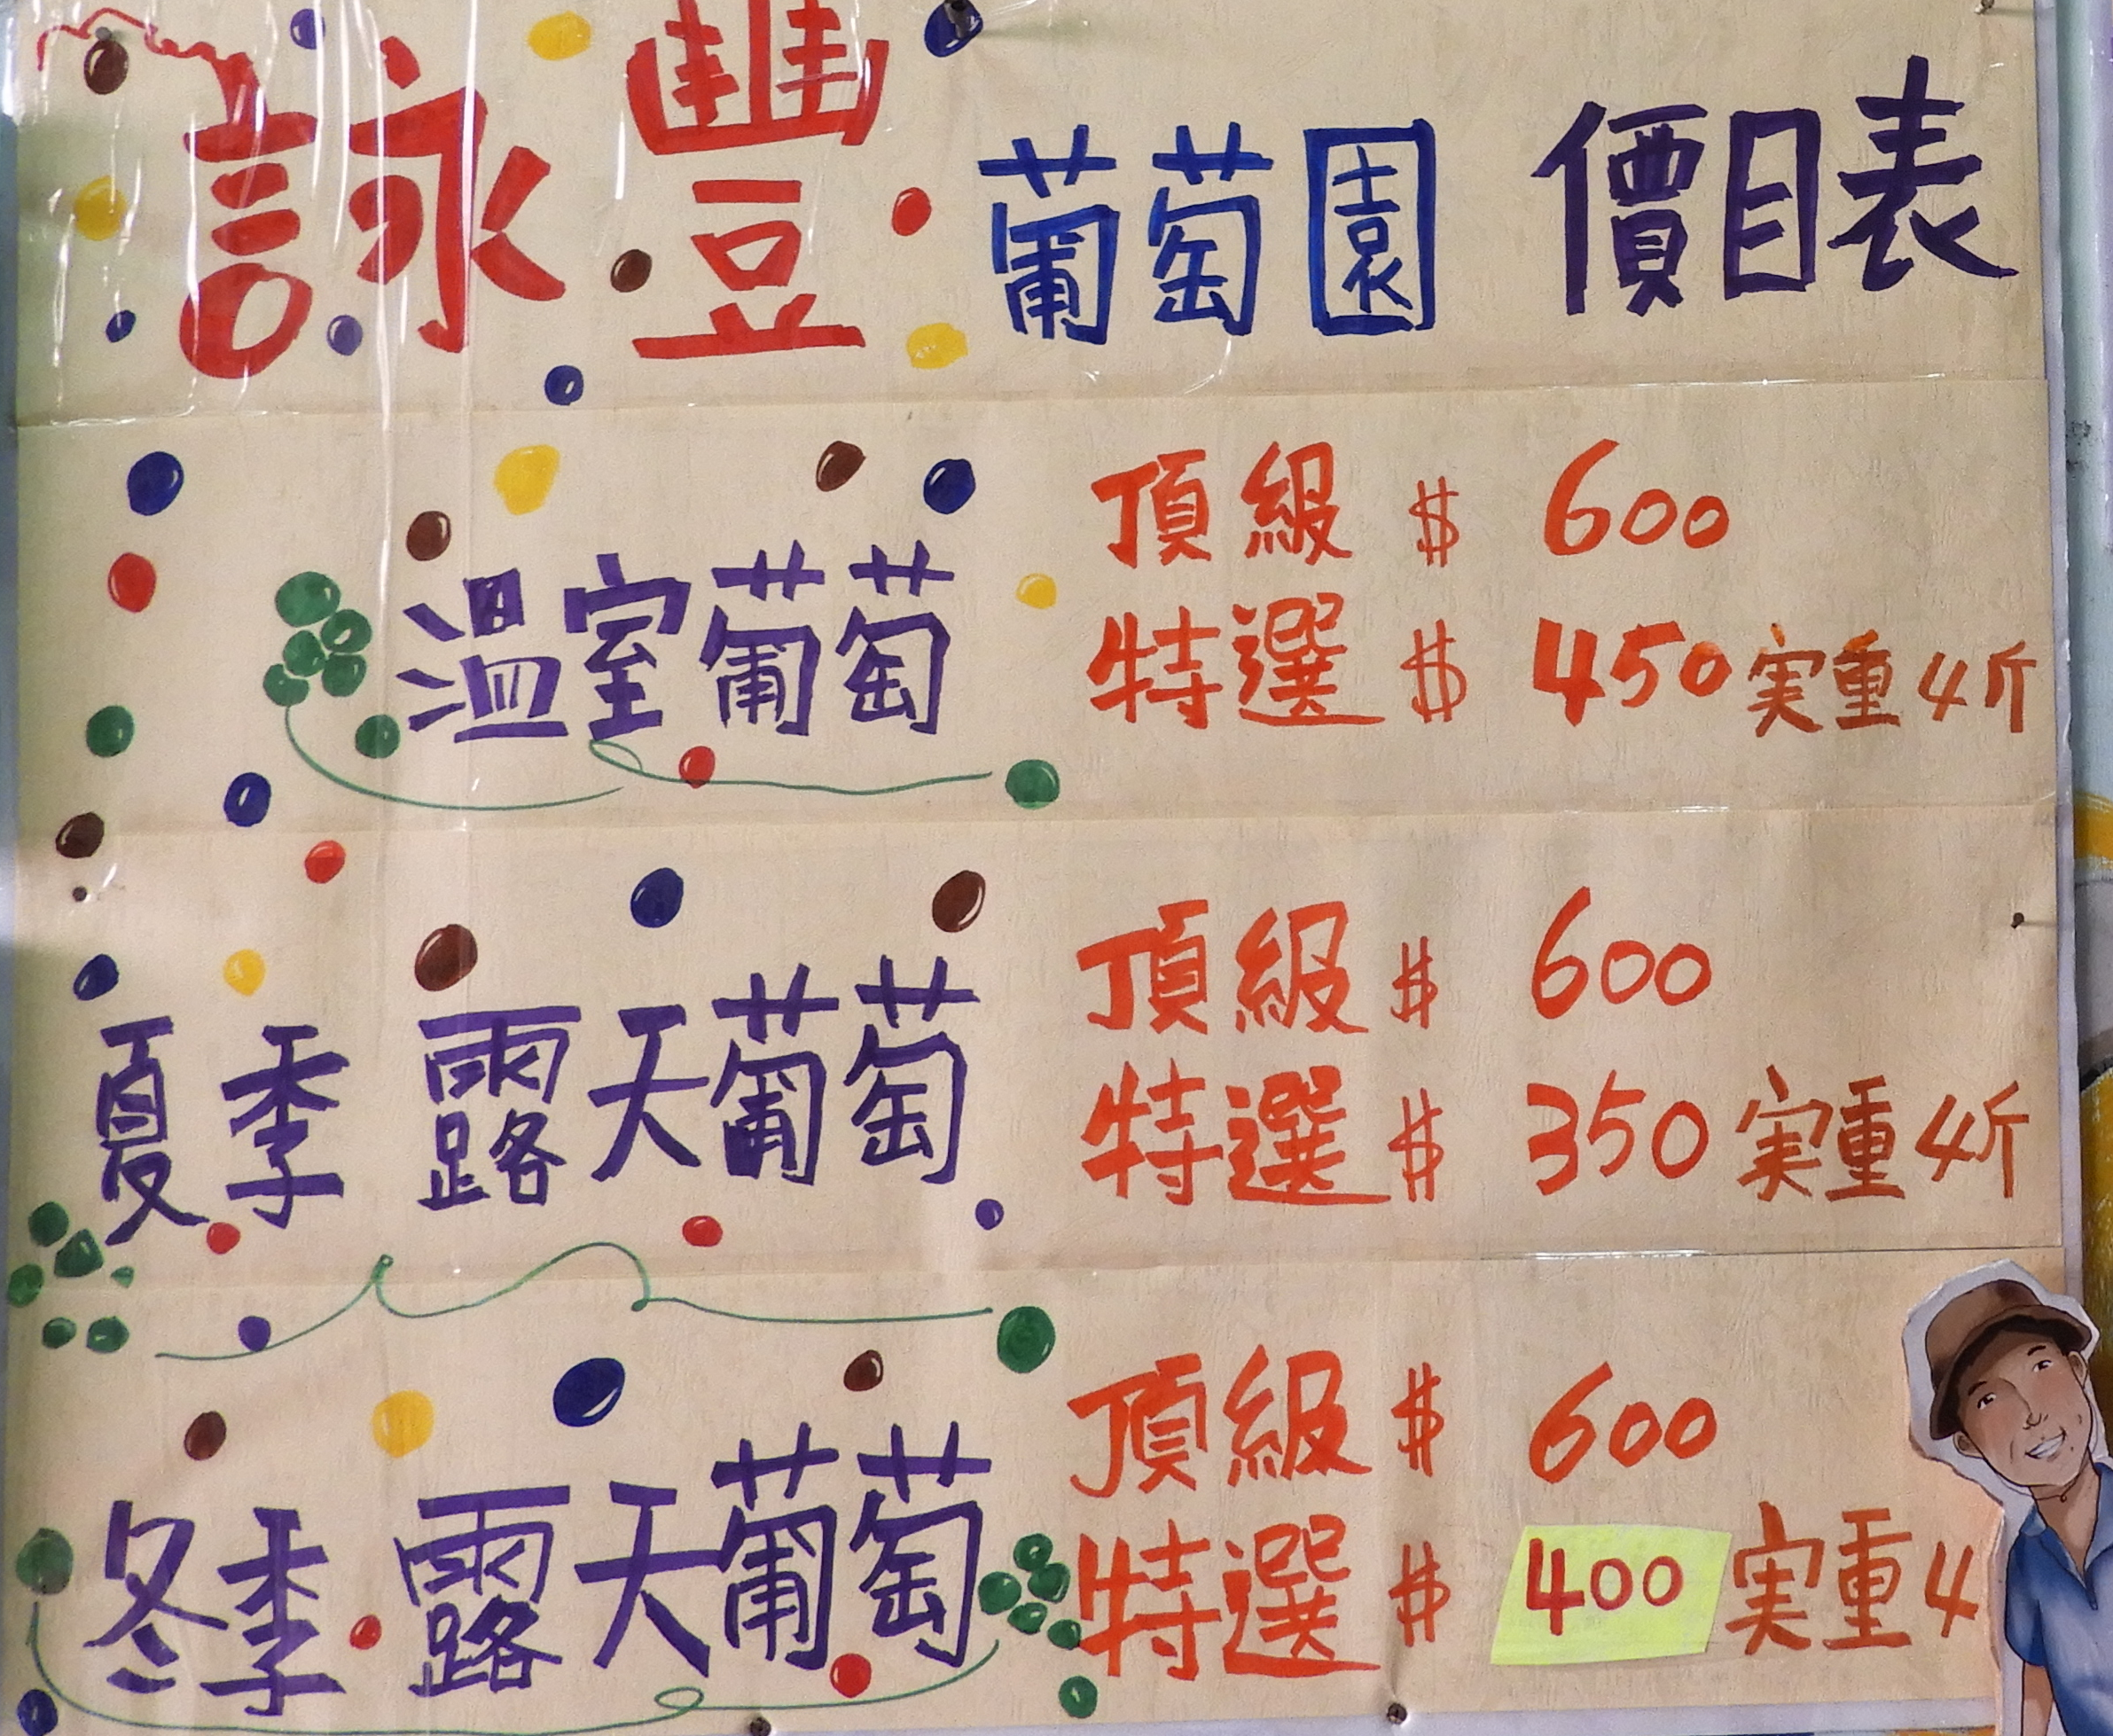 詠豐葡萄園 價目表
溫室葡萄
頂級 $ 600
特選 $ 450 実重4斤
夏季 露天葡萄
頂級 $ 600
特選 $ 350 実重4斤
冬季 露天葡萄
頂級 $ 600
特選 $ 400 実重4